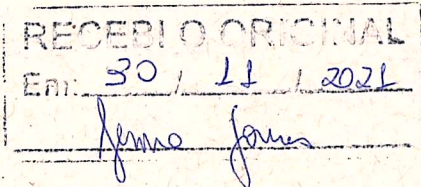 RECEBI O ORIGINAL
Em: 30 / 11 / 2021